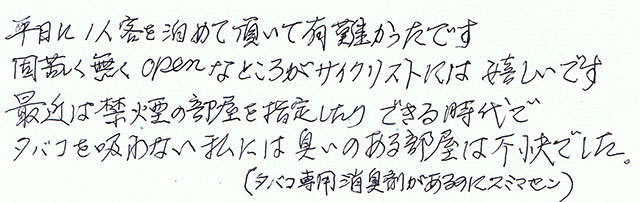 平日に1人客を泊めて頂いて有難かったです
固苦しく無くopenなところがサイクリストには嬉しいです
最近は禁煙の部屋を指定したりできる時代で
タバコを吸わない私には臭いのある部屋は不快でした。
(タバコ専用消臭剤があるのにスミマセン)